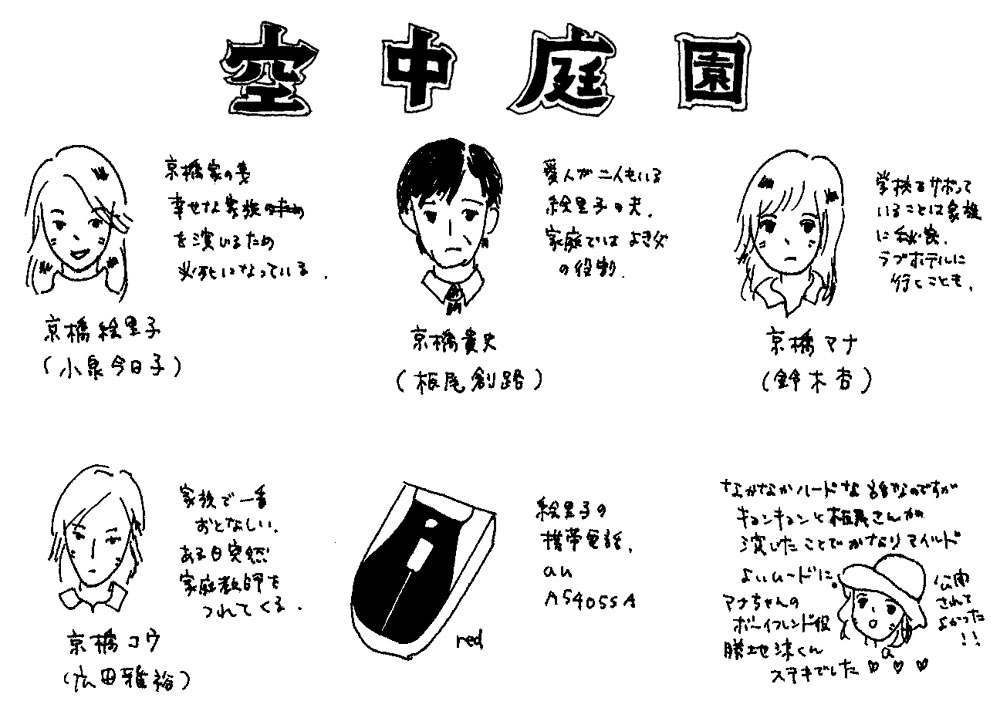 空中庭園
京橋家の妻
幸せな家族
を演じるため
必死になっている.
京橋絵里子
(小泉今日子)
愛人が二人もいる
絵里子の夫.
家庭では よき父
の役割.
京橋貴史
(板尾創路)
学校をサボって
いることは家族
に秘密.
ラブホテルに
行くことも.
京橋マナ
(鈴木杏)
家族で一番
おとなしい.
ある日突然
家庭教師を
つれてくる.
京橋コウ
(広田雅裕)
絵里子の
携帯電話.
au
A5405SA
red
なかなかハードな話なのですが
キョンキョンと板尾さんが
演じたことでかなりマイルド
よいムードに。
マナちゃんの
ボーイフレンド役
勝地涼くん
ステキでした♡♡♡
公開
されて
よかった
!!